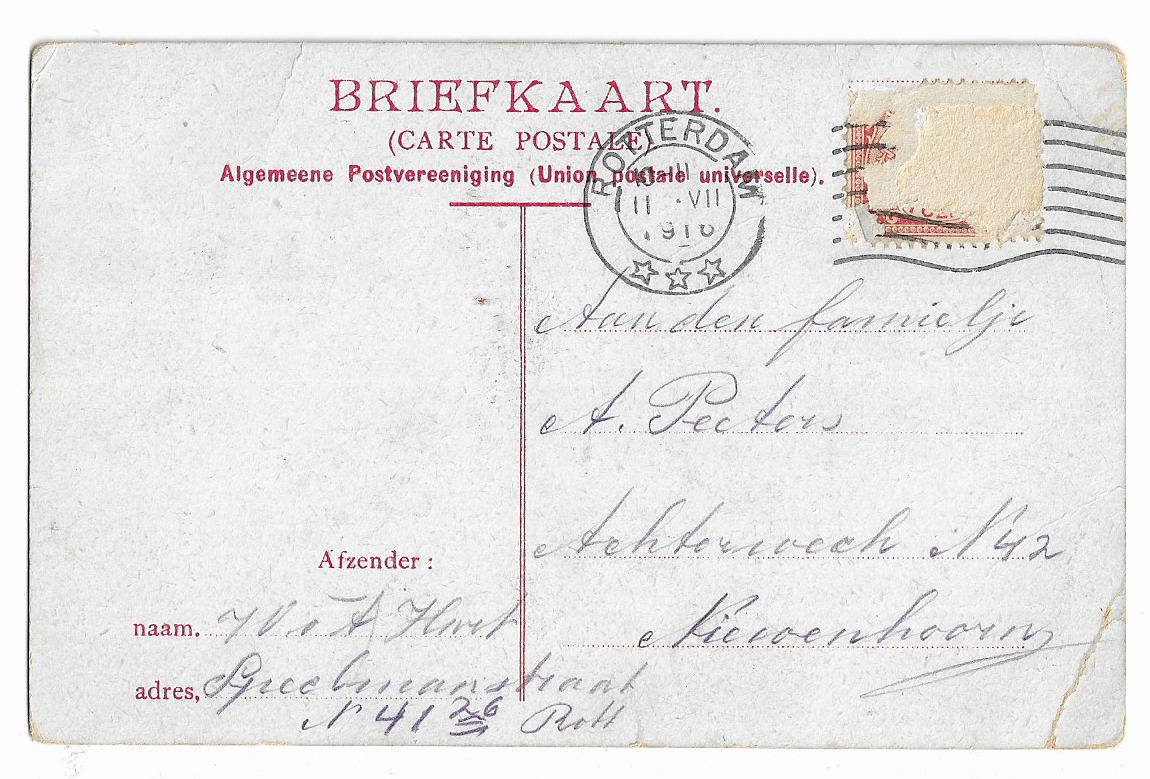 BRIEFKAART.
(CARTE POSTALE)
Algemeene Postvereeniging (Union postale universelle).
ROTTERDAM
11 .VII
1916
Aan den familje
A. Peeters
Achterwech N 42
Nieuwenhoorn
Afzender :
naam.
adres, Speelmanstraat
N 41 Rott